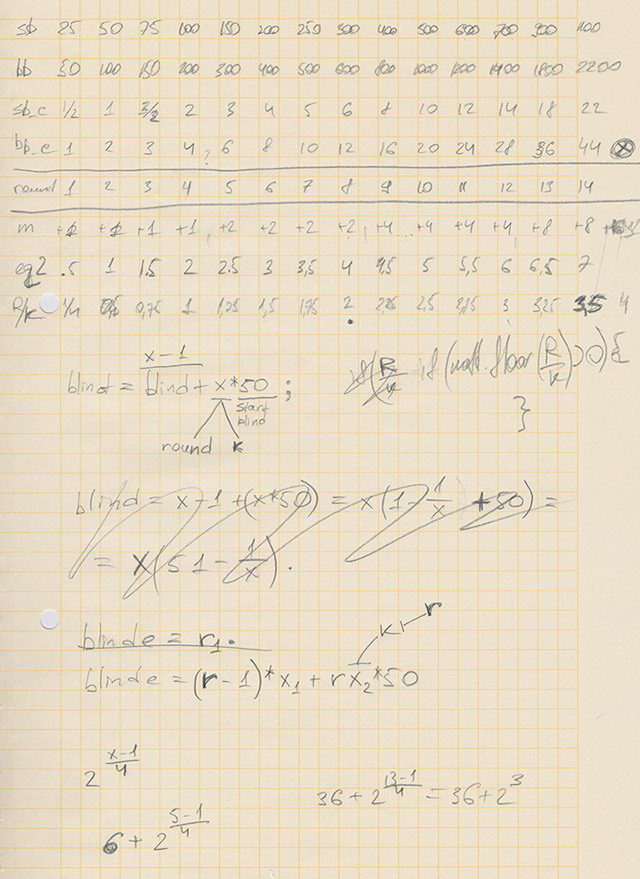 sb 25 50 75 100 150 200 250 300 400 500 600 700 900 1100
bb 50 100 150 200 300 400 500 600 800 1000 1200 1400 1800 2200
sb_c 1/2 1 3/2 2 3 4 5 6 8 10 12 14 18 22
bb_c 1 2 3 4 ? 6 8 10 12 16 20 24 28 36 44 ⊗
round 1 2 3 4 5 6 7 8 9 10 11 12 13 14
m +1 +1 +1 +1 +2 +2 +2 +2 +4 +4 +4 +4 +8 +8
eq2 .5 1 1.5 2 2.5 3 3,5 4 4,5 5 5,5 6 6,5 7
R/k 1/4 0,5 0,75 1 1,25 1,5 1,75 2 2,25 2.5 2,75 3 3,25 3,5 4
blind = x-1/blind + x*50 ;
start
blind
round k
if (R/k if (math.floor(R/k)>0){
}
blind = x-1+(x*50) = x(1-1/x+50) =
= x(51-1/x).
blinde = r1.
k r
blinde = (r-1)*x1+rx2*50
2^(x-1)/4
36+2^(13-1)/4=36+2^3
6+2^(5-1)/4